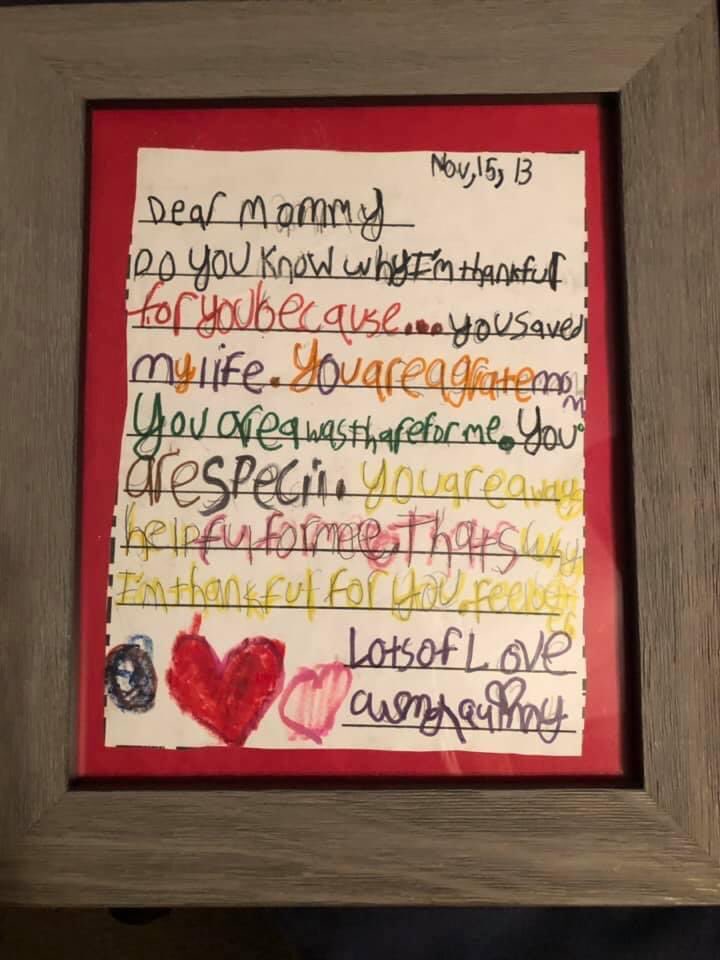 Nov, 15, 13
Dear Mommy
Do You Know why I'm thankful
for you because... you saved
my life. You are a grate mom
You are awas thare for me. You
are specii. you are aways
helpful for mee. Thats why
I'm thankful for you. feel better
Lots of Love